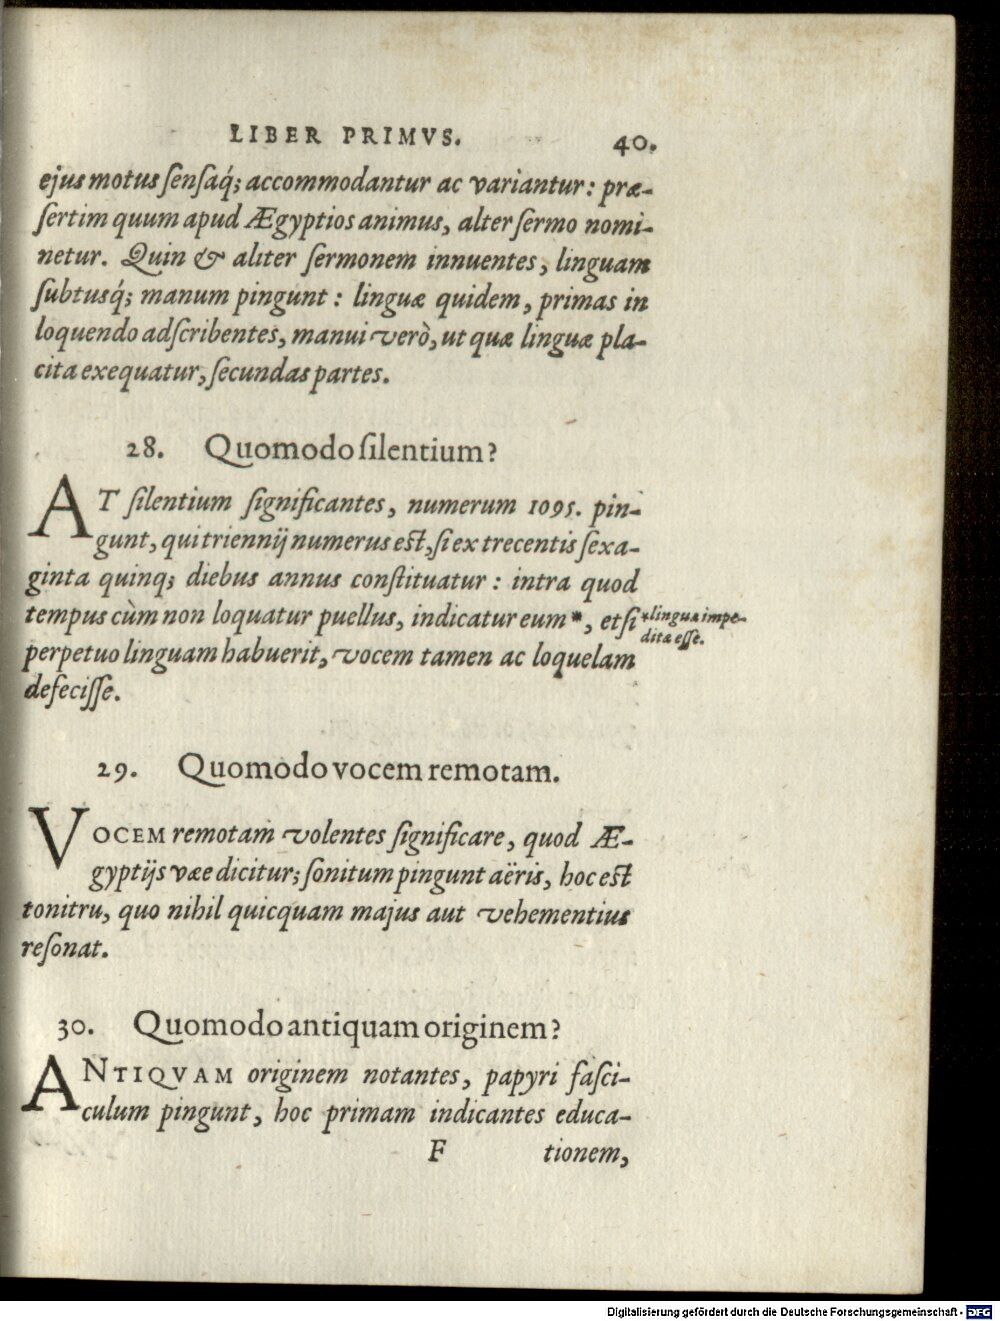 LIBER PRIMVS. 40.
ejus motus ſenſaq́; accommodantur ac variantur: præ-
ſertim quum apud Ægyptios animus, alter ſermo nomi-
netur. Quin & aliter ſermonem innuentes, linguam
ſubtusq́; manum pingunt: linguæ quidem, primas in
loquendo adſcribentes, manui verò, ut quæ linguæ pla-
cita exequatur, ſecundas partes.
28. Quomodo ſilentium?
AT ſilentium ſignificantes, numerum 1095. pin-
gunt, qui triennij numerus eſt, ſi ex trecentis ſexa-
ginta quinq; diebus annus conſtituatur: intra quod
tempus cùm non loquatur puellus, indicatur eum*, etſi
*linguæ impe-
ditæ eſſe.
perpetuo linguam habuerit, vocem tamen ac loquelam
defeciſſe.
29. Quomodo vocem remotam.
VOCEM remotam volentes ſignificare, quod Æ-
gyptijs væe dicitur; ſonitum pingunt aëris, hoc eſt
tonitru, quo nihil quicquam majus aut vehementius
reſonat.
30. Quomodo antiquam originem?
ANTIQVAM originem notantes, papyri faſci-
culum pingunt, hoc primam indicantes educa-
F tionem,
Digitalisierung gefördert durch die Deutsche Forschungsgemeinschaft - DFG